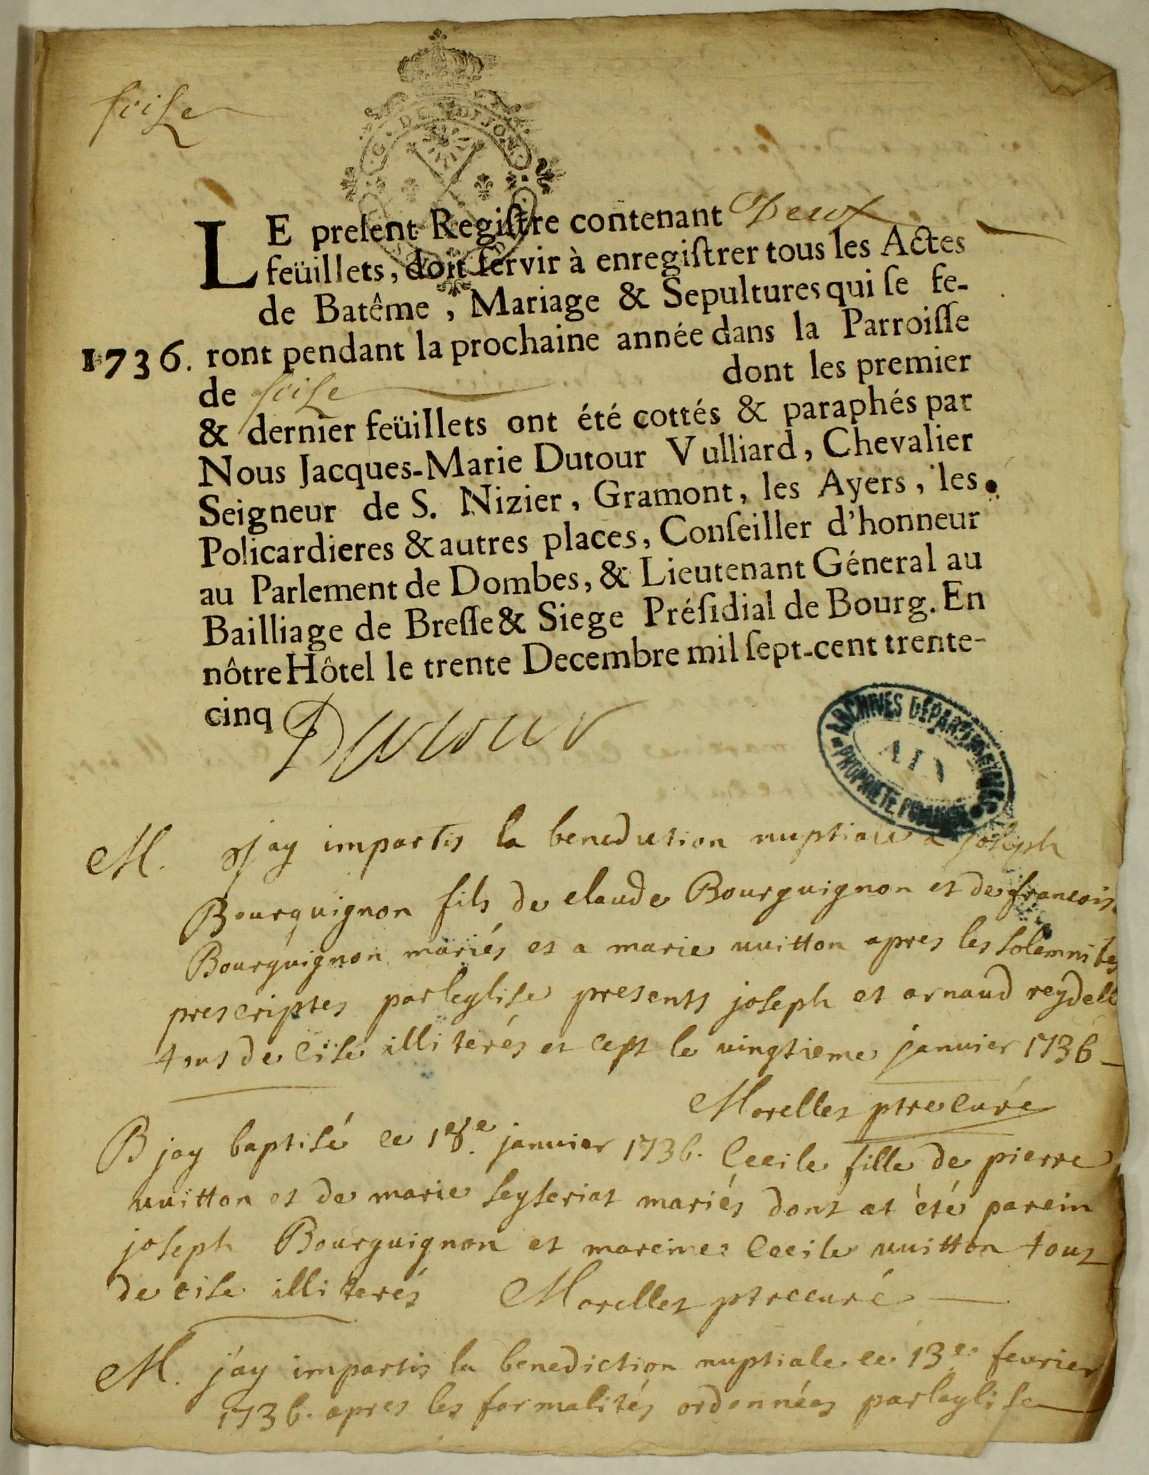 G. DE DIJON
LE present Registre contenant Deux
feüillets, doit servir à enregistrer tous les Actes
de Batême, Mariage & Sepultures qui se fe-
1736. ront pendant la prochaine année dans la Parroisse
de dont les premier
& dernier feüillets ont été cottés & paraphés par
Nous Jacques-Marie Dutour Vulliard, Chevalier
Seigneur de S. Nizier, Gramont, les Ayers, les
Policardieres & autres places, Conseiller d'honneur
au Parlement de Dombes, & Lieutenant Géneral au
Bailliage de Bresse & Siege Présidial de Bourg. En
nôtre Hôtel le trente Decembre mil sept-cent trente-
cinq Dutour
ARCHIVES DÉPARTEMENTALES
AIN
PROPRIÉTÉ PUBLIQUE
M. jay impartis la benediction nuptiale a joseph
Bourguignon fils de claude Bourguignon et de francois
Bourguignon mariés et a marie vuitton apres les solemnités
prescriptes par leglise presents joseph et arnaud reydell
tous de cise illiterés et cept le vingtieme janvier 1736
Morellet ptre curé
B jay baptisé ce 18e janvier 1736. Cecile fille de pierre
vuitton et de marie seyseriat mariés dont at été parein
joseph Bourguignon et mareine Cecile vuitton tous
de cise illiterés Morellet ptre curé
M. j'ay impartis la benediction nuptiale ce 13e fevrier
1736. apres les formalités ordonnées par leglise